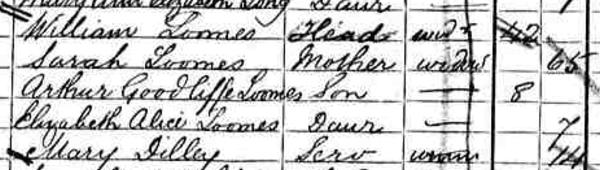 Mary Ann Elizabeth Long Daur 7
William Loomes Head wid r 42
Sarah Loomes Mother widow 65
Arthur Goodliffe Loomes Son — 8
Elizabeth Alice Loomes Daur — 7
Mary Dilley Serv unm 14